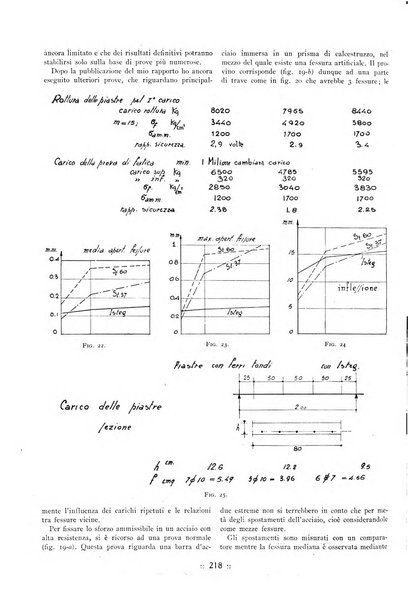 ancora limitato e che dei risultati definitivi potranno
stabilirsi solo sulla base di prove più numerose.
Dopo la pubblicazione del mio rapporto ho ancora
eseguito ulteriori prove, che riguardano principal-
ciaio immersa in un prisma di calcestruzzo, nel
mezzo del quale esiste una fessura artificiale. Il pro-
vino corrisponde (fig. 19-b) dunque ad una parte
di trave come in fig. 20 che avrebbe 3 fessure; le
Rottura delle piastre pel I° carico
carico rottura Kg 8020 7965 8440
m=15; σf Kg/cm² 3440 4920 5800
σamm. 1200 1700 1700
rapp. sicurezza 2,9 volte 2.9 3.4
Carico della prova di fatica min. 1 Milione cambiam. carico
carico sup. Kg 6500 4785 5595
" inf. " 320 320 320
σf. 2850 3040 3830
σamm 1200 1700 1700
rapp. sicurezza 2.38 1.8 2.25
m.m. media apert. fessure
0.4
0.3
0.2
0.1
0
St.60
St.37
Isteg
FIG. 22.
m.m. max. apert. fessure
1
0.8
0.6
0.4
0.2
0
St.60
St.37
Isteg
FIG. 23.
m.m.
15
10
5
0
St.60
St.37
Isteg
inflessione
FIG. 24
Piastre con ferri tondi con Isteg
25 50 50 50 25
Carico delle piastre
2.00
sezione
h
80
h cm. 12.6 12.2 9.5
f cmq 7ϕ10 = 5.49 5ϕ10 = 3.96 6ϕ7 = 4.66
FIG. 25.
mente l'influenza dei carichi ripetuti e le relazioni
tra fessure vicine.
Per fissare lo sforzo ammissibile in un acciaio con
alta resistenza, si è ricorso ad una prova normale
(fig. 19-a). Questa prova riguarda una barra d'ac-
due estreme non si terrebbero in conto che per me-
tà degli spostamenti dell'acciaio, cioè considerandole
come mezze fessure.
Gli spostamenti sono misurati con un compara-
tore mentre la fessura mediana è osservata mediante
:: 218 ::